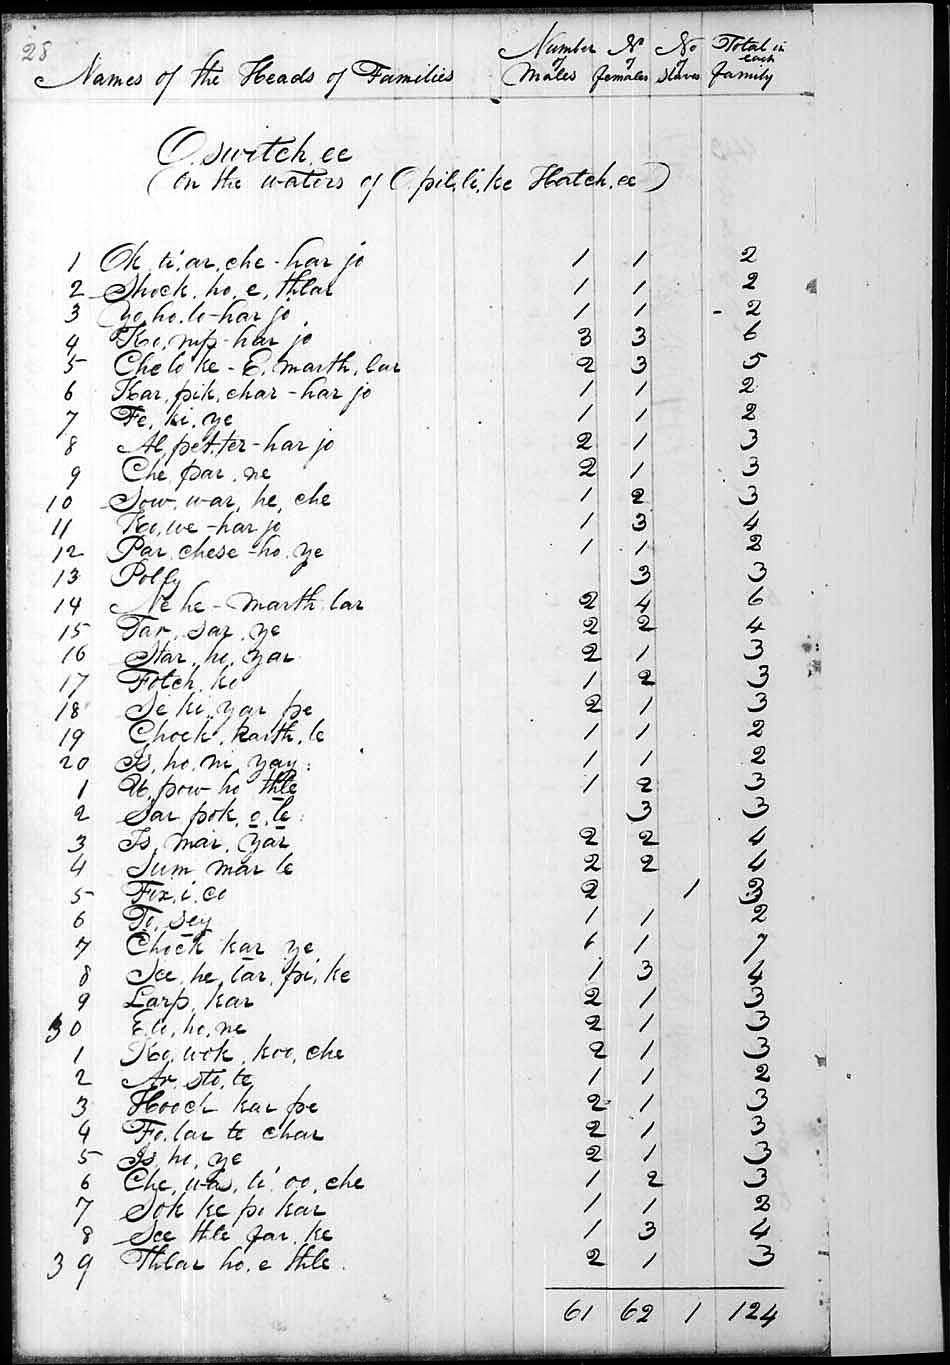 28
Names of the Heads of Families Number of Males No of females No of Slaves Total in each family
O.switch.ee
(on the waters of O.pil.li.ke Hatch.ee)
1 Ok.ti.ar.che-har jo 1 1 2
2 Shock.ho.e.thlar 1 1 2
3 Yo.ho.lo-har jo 1 1 2
4 Ko.nip-har jo 3 3 6
5 Chelo ke-E.marth.lar 2 3 5
6 Kar.pik.char-har jo 1 1 2
7 Fe.ki.ye 1 1 2
8 Al.pet.ter-har jo 2 1 3
9 Che.par.ne 2 1 3
10 Sow.war.he.che 1 2 3
11 Ko.we-har jo 1 3 4
12 Par.chese-ho.ye 1 1 2
13 Polly 3 3
14 Ne he-marth.lar 2 4 6
15 Tar.sar.ye 2 2 4
16 Star.ho.yar 2 1 3
17 Fotch.ko 1 2 3
18 Se ki.yar pe 2 1 3
19 Chock.karth.le 1 1 2
20 Is.ho.ni.yay 1 1 2
1 U.pow ho thle 1 2 3
2 Sar pok.o.le 3 3
3 Is.mar.yar 2 2 4
4 Sum mar le 2 2 4
5 Fix.i.co 2 1 3
6 To.sey 1 1 2
7 Chock kar ye 6 1 7
8 See.he.tar.pi.ke 1 3 4
9 Larp.kar 2 1 3
30 E.li.ho.ne 2 1 3
1 Ko.wok.koo.che 2 1 3
2 Ar.sto.te 1 1 2
3 Hooch kar pe 2 1 3
4 Fo.lar te char 2 1 3
5 Is.ho.ye 2 1 3
6 Che.was.ti.oo.che 1 2 3
7 Sok ke pi kar 1 1 2
8 See thle far.ke 1 3 4
39 Thlar ho.e thle 2 1 3
61 62 1 124